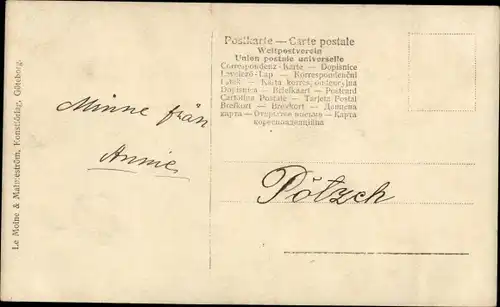 Le Moine & Malmeström, Konstförlag, Göteborg.
Minne från
Annie
Postkarte — Carte postale
Weltpostverein
Union postale universelle
Correspondenz-Karte — Dopisnice
Levelező-Lap — Korrespondenční
Lístek — Karta korespondencyjna
Dopisnica — Briefkaart — Postcard
Cartolina Postale — Tarjeta Postal
Brefkort — Brevkort — Дописна
карта — Открытое письмо — Карта
кореспонденційна
Pötzch